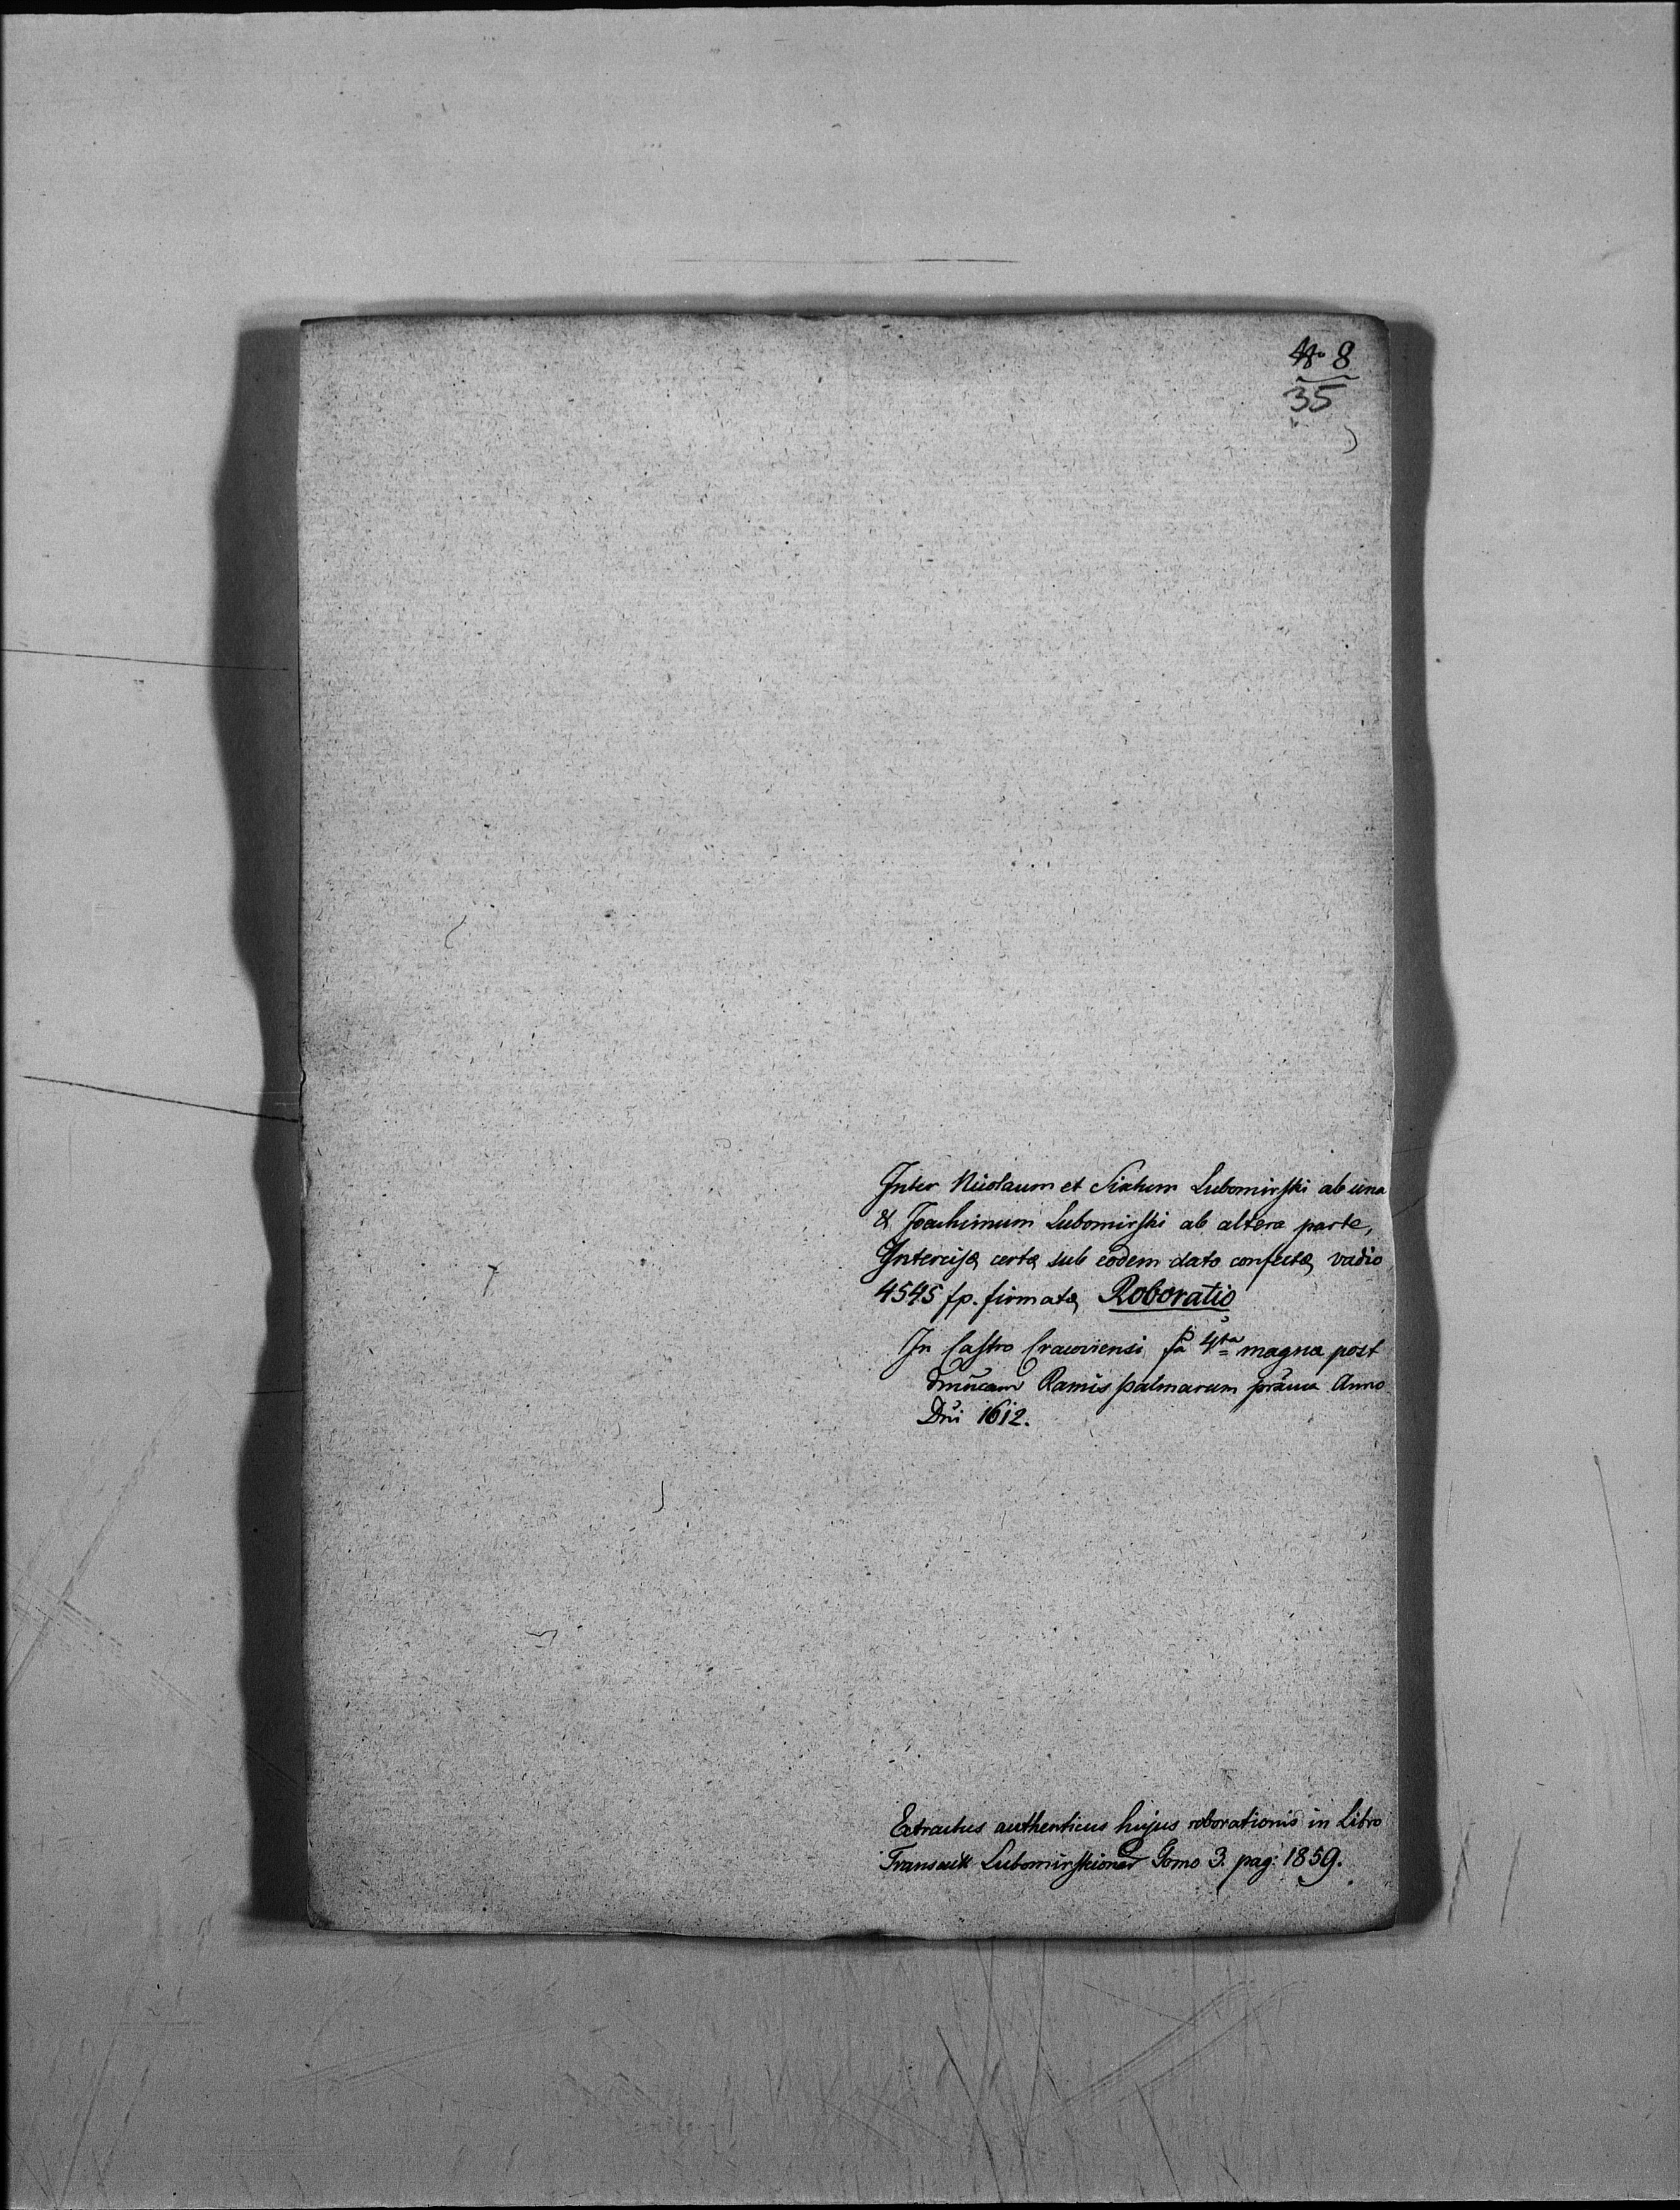 No 8
35
Inter Nicolaum et Sixtum Lubomirski ab una
& Joachimum Lubomirski ab altera parte,
Intercisæ certæ sub eodem dato confectæ, vadio
4545 fp. firmatæ, Roboratio
In Castro Cracoviensi fa 4ta magna post
Dnicam Ramis palmarum
Anno
Dni 1612.
Extractus authenticus hujus roborationis in Libro
Transact Lubomirskionar Tomo 3. pag: 1859.